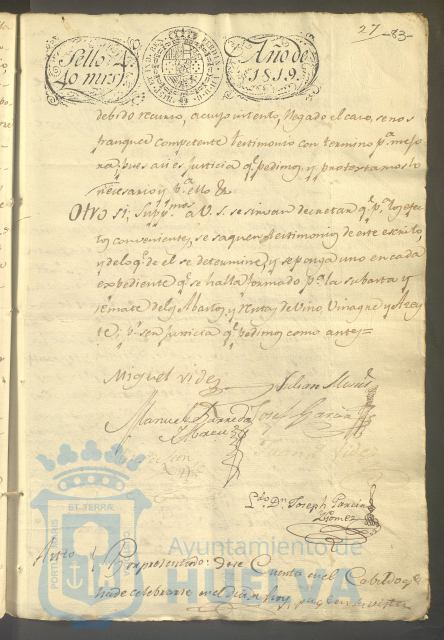 27 -83-
Sello 4º
40 mrs
Año de
1819.
debido recurso, a cuyo intento, llegado el caso, se nos
franquee competente testimonio con termino pª. mejo
rar, pues asi es justicia qe. pedimos, y protextamos lo
necesario y pª. ello &
Otro si, Suppmos. a V. S. se sirvan decretar qe. pª. los efec
tos convenientes, se saquen testimonios de este escrito,
y de lo qe. de el se determine, y se ponga uno en cada
expediente qe. se halla formado pª. la subasta y
remate de los Abastos, y rentas de Vino, Vinagre y Azey
te; pr. ser justicia qe. pedimos como antes=
Miguel Videz Julian
Manuel Barreda Josef Garcia
Ldo. Dn. Joseph Garcia
Gomez
Auto Por presentado: Dese Cuenta en el Cabildo qe.
ha de celebrarse en el dia de hoy
ET TERRÆ
PORTUS MARIS
Ayuntamiento de
HUELVA